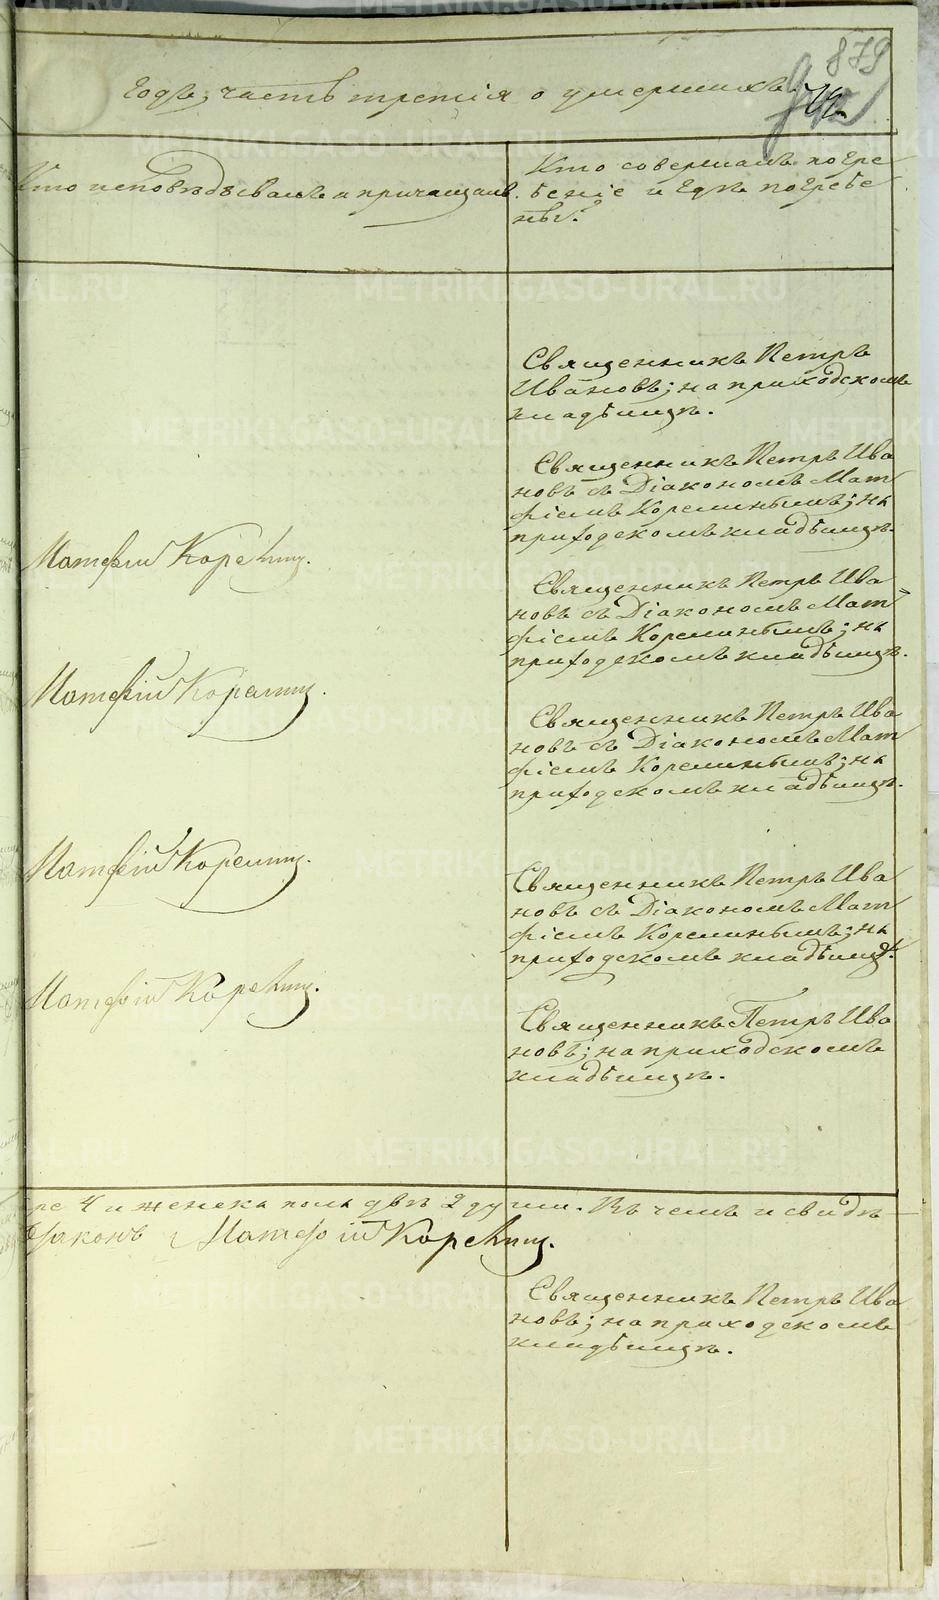 879
годъ, часть третія о умершихъ.
Кто исповѣдывалъ и причащалъ.
Кто совершалъ погре
бенiе и гдѣ погребе
ны?
Священникъ Петръ
Ивановъ; на приходскомъ
кладбищѣ.
Священникъ Петръ Ива
новъ съ Дiакономъ Мат
фiемъ Корелинымъ; на
приходскомъ кладбищѣ.
Матфiй Корелин.
Священникъ Петръ Ива
новъ съ Дiакономъ Мат
фiемъ Корелинымъ; на
приходскомъ кладбищѣ.
Матфiй Корелин.
Священникъ Петръ Ива
новъ съ Дiакономъ Мат
фiемъ Корелинымъ; на
приходскомъ кладбищѣ.
Матфiй Корелин.
Священникъ Петръ Ива
новъ съ Дiакономъ Мат
фiемъ Корелинымъ; на
приходскомъ кладбищѣ.
Матфiй Корелин.
Священникъ Петръ Ива
новъ; на приходскомъ
кладбищѣ.
4 и женска пола двѣ 2 души. Въ чемъ и свидѣ
Матфiй Корелин.
Священникъ Петръ Ива
новъ; на приходскомъ
кладбищѣ.
METRIKI.GASO-URAL.RU